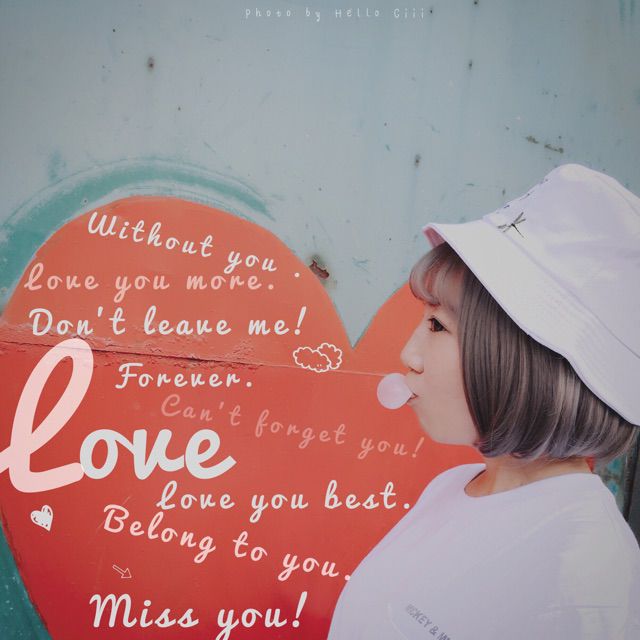 photo by Hello Ciii
Without you.
Love you more.
Don't leave me!
Forever.
Can't forget you!
Love
Love you best.
Belong to you.
Miss you!